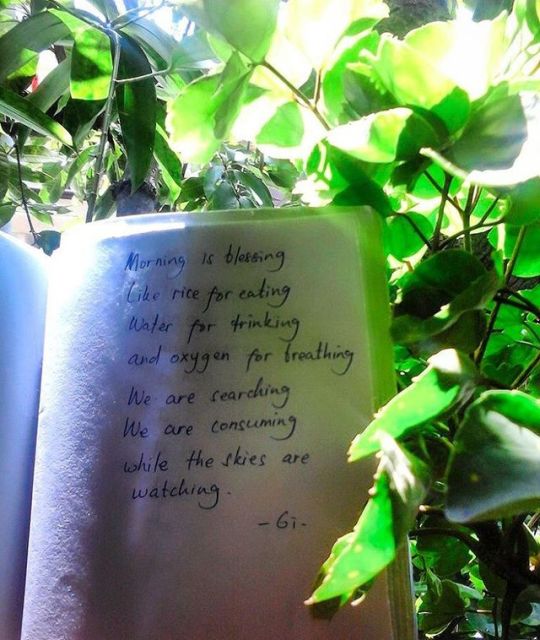 Morning is blessing
Like rice for eating
Water for trinking
and oxygen for breathing
We are searching
We are consuming
while the skies are
watching.
- Gi -